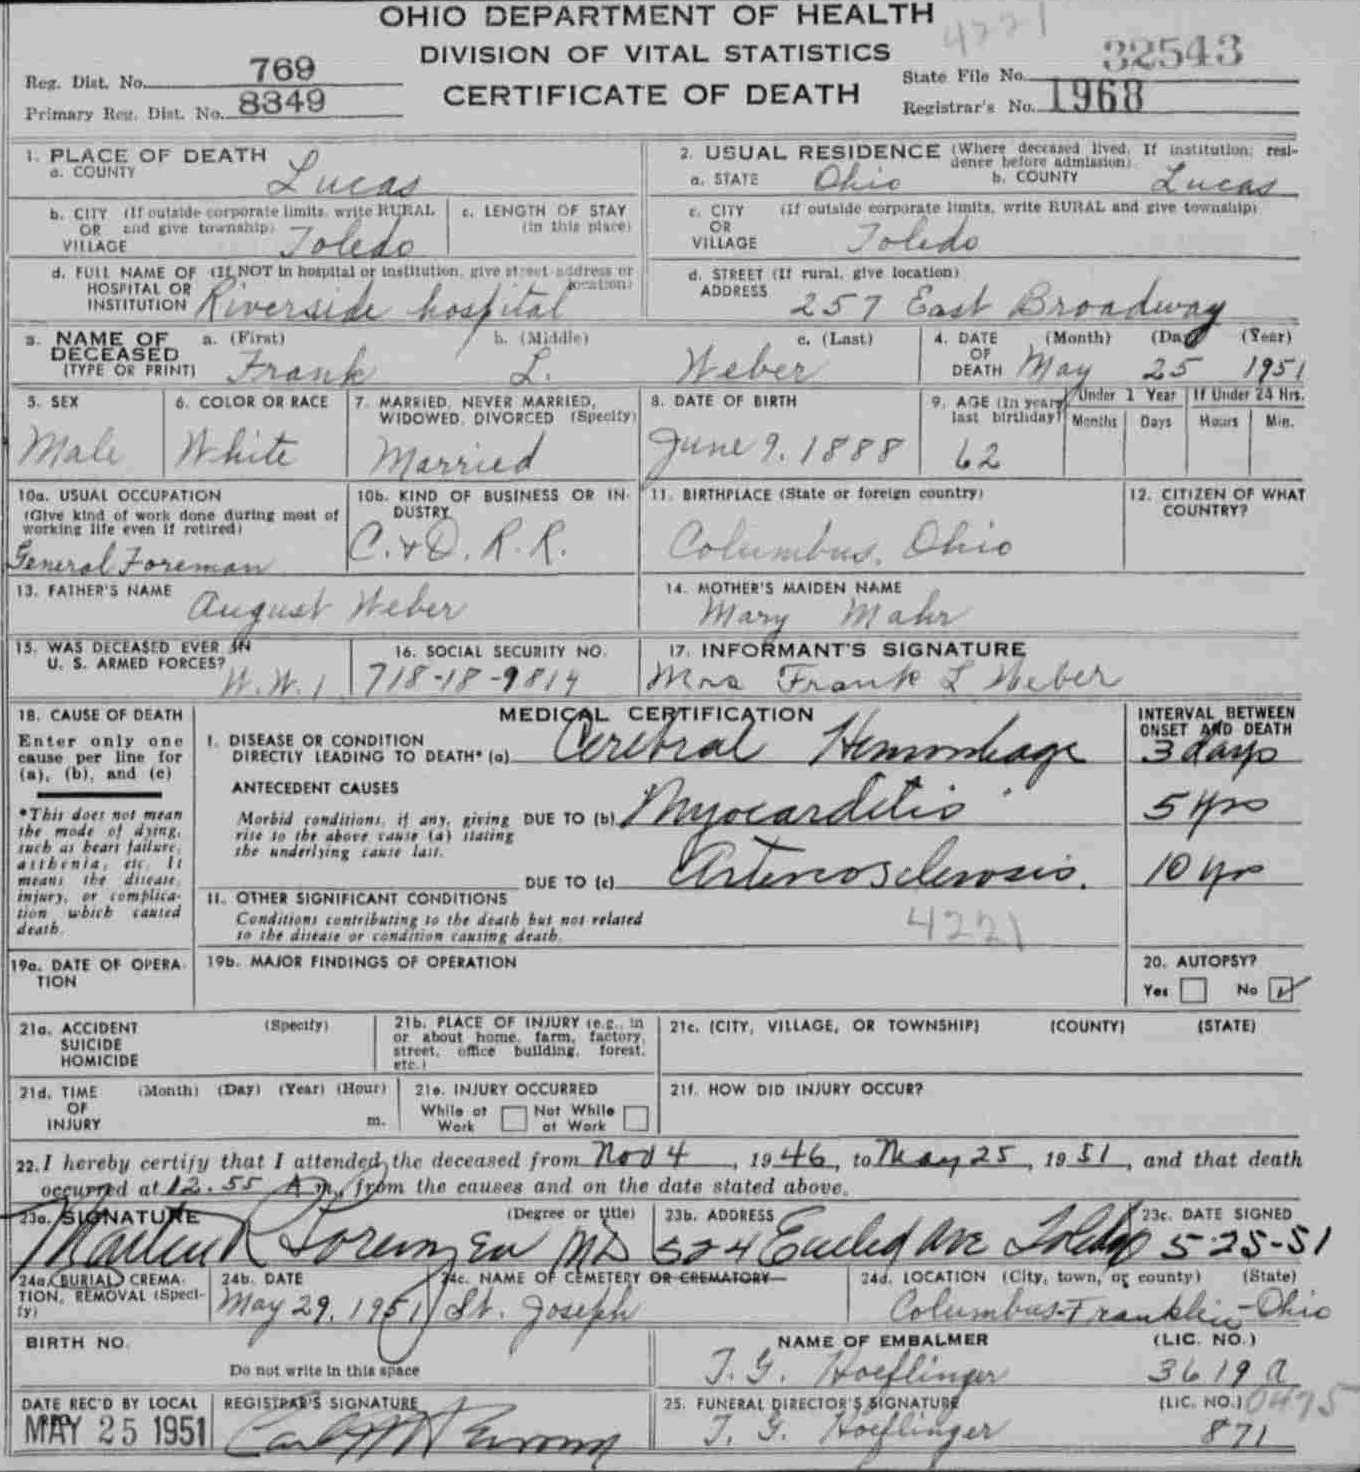 OHIO DEPARTMENT OF HEALTH
4221
DIVISION OF VITAL STATISTICS
CERTIFICATE OF DEATH
Reg. Dist. No. 769
Primary Reg. Dist. No. 8349
State File No. 32543
Registrar's No. 1968
1. PLACE OF DEATH
a. COUNTY Lucas
2. USUAL RESIDENCE (Where deceased lived. If institution: resi-
dence before admission)
a. STATE Ohio b. COUNTY Lucas
b. CITY (If outside corporate limits, write RURAL
OR and give township)
VILLAGE Toledo
c. LENGTH OF STAY
(in this place)
c. CITY (If outside corporate limits, write RURAL and give township)
OR
VILLAGE Toledo
d. FULL NAME OF (If NOT in hospital or institution, give street address or
HOSPITAL OR location)
INSTITUTION Riverside hospital
d. STREET (If rural, give location)
ADDRESS 257 East Broadway
3. NAME OF a. (First) b. (Middle) c. (Last)
DECEASED
(TYPE OR PRINT) Frank L. Weber
4. DATE (Month) (Day) (Year)
OF
DEATH May 25 1951
5. SEX
Male
6. COLOR OR RACE
White
7. MARRIED, NEVER MARRIED,
WIDOWED, DIVORCED (Specify)
Married
8. DATE OF BIRTH
June 9. 1888
9. AGE (In years
last birthday)
62
Under 1 Year
Months Days
If Under 24 Hrs.
Hours Min.
10a. USUAL OCCUPATION
(Give kind of work done during most of
working life even if retired)
General Foreman
10b. KIND OF BUSINESS OR IN-
DUSTRY
C. & O. R. R.
11. BIRTHPLACE (State or foreign country)
Columbus, Ohio
12. CITIZEN OF WHAT
COUNTRY?
13. FATHER'S NAME
August Weber
14. MOTHER'S MAIDEN NAME
Mary Mahr
15. WAS DECEASED EVER IN
U. S. ARMED FORCES?
W.W. 1
16. SOCIAL SECURITY NO.
718-18-9814
17. INFORMANT'S SIGNATURE
Mrs Frank L Weber
18. CAUSE OF DEATH
Enter only one
cause per line for
(a), (b), and (c)
*This does not mean
the mode of dying,
such as heart failure,
asthenia, etc. It
means the disease,
injury, or complica-
tion which caused
death.
MEDICAL CERTIFICATION
I. DISEASE OR CONDITION
DIRECTLY LEADING TO DEATH* (a) Cerebral Hemorrhage
ANTECEDENT CAUSES
Morbid conditions, if any, giving DUE TO (b) Myocarditis
rise to the above cause (a) stating
the underlying cause last.
DUE TO (c) Arteriosclerosis.
II. OTHER SIGNIFICANT CONDITIONS
Conditions contributing to the death but not related
to the disease or condition causing death.
4221
INTERVAL BETWEEN
ONSET AND DEATH
3 days
5 yrs
10 yrs
19a. DATE OF OPERA-
TION
19b. MAJOR FINDINGS OF OPERATION
20. AUTOPSY?
Yes No
21a. ACCIDENT (Specify)
SUICIDE
HOMICIDE
21b. PLACE OF INJURY (e.g., in
or about home, farm, factory,
street, office building, forest,
etc.)
21c. (CITY, VILLAGE, OR TOWNSHIP) (COUNTY) (STATE)
21d. TIME (Month) (Day) (Year) (Hour)
OF
INJURY m.
21e. INJURY OCCURRED
While at Not While
Work at Work
21f. HOW DID INJURY OCCUR?
22. I hereby certify that I attended the deceased from Nov 4, 1946, to May 25, 1951, and that death
occurred at 12.55 A m., from the causes and on the date stated above.
23a. SIGNATURE (Degree or title)
Martin R Lorenzen MD
23b. ADDRESS
524 Euclid Ave Toledo
23c. DATE SIGNED
5-25-51
24a. (BURIAL) CREMA-
TION, REMOVAL (Speci-
fy)
24b. DATE
May 29, 1951
24c. NAME OF CEMETERY OR CREMATORY
St. Joseph
24d. LOCATION (City, town, or county) (State)
Columbus-Franklin-Ohio
BIRTH NO.
Do not write in this space
NAME OF EMBALMER (LIC. NO.)
T. G. Hoeflinger 3619 A
DATE REC'D BY LOCAL
MAY 25 1951
REGISTRAR'S SIGNATURE
25. FUNERAL DIRECTOR'S SIGNATURE (LIC. NO.) 0475
T. G. Hoeflinger 871